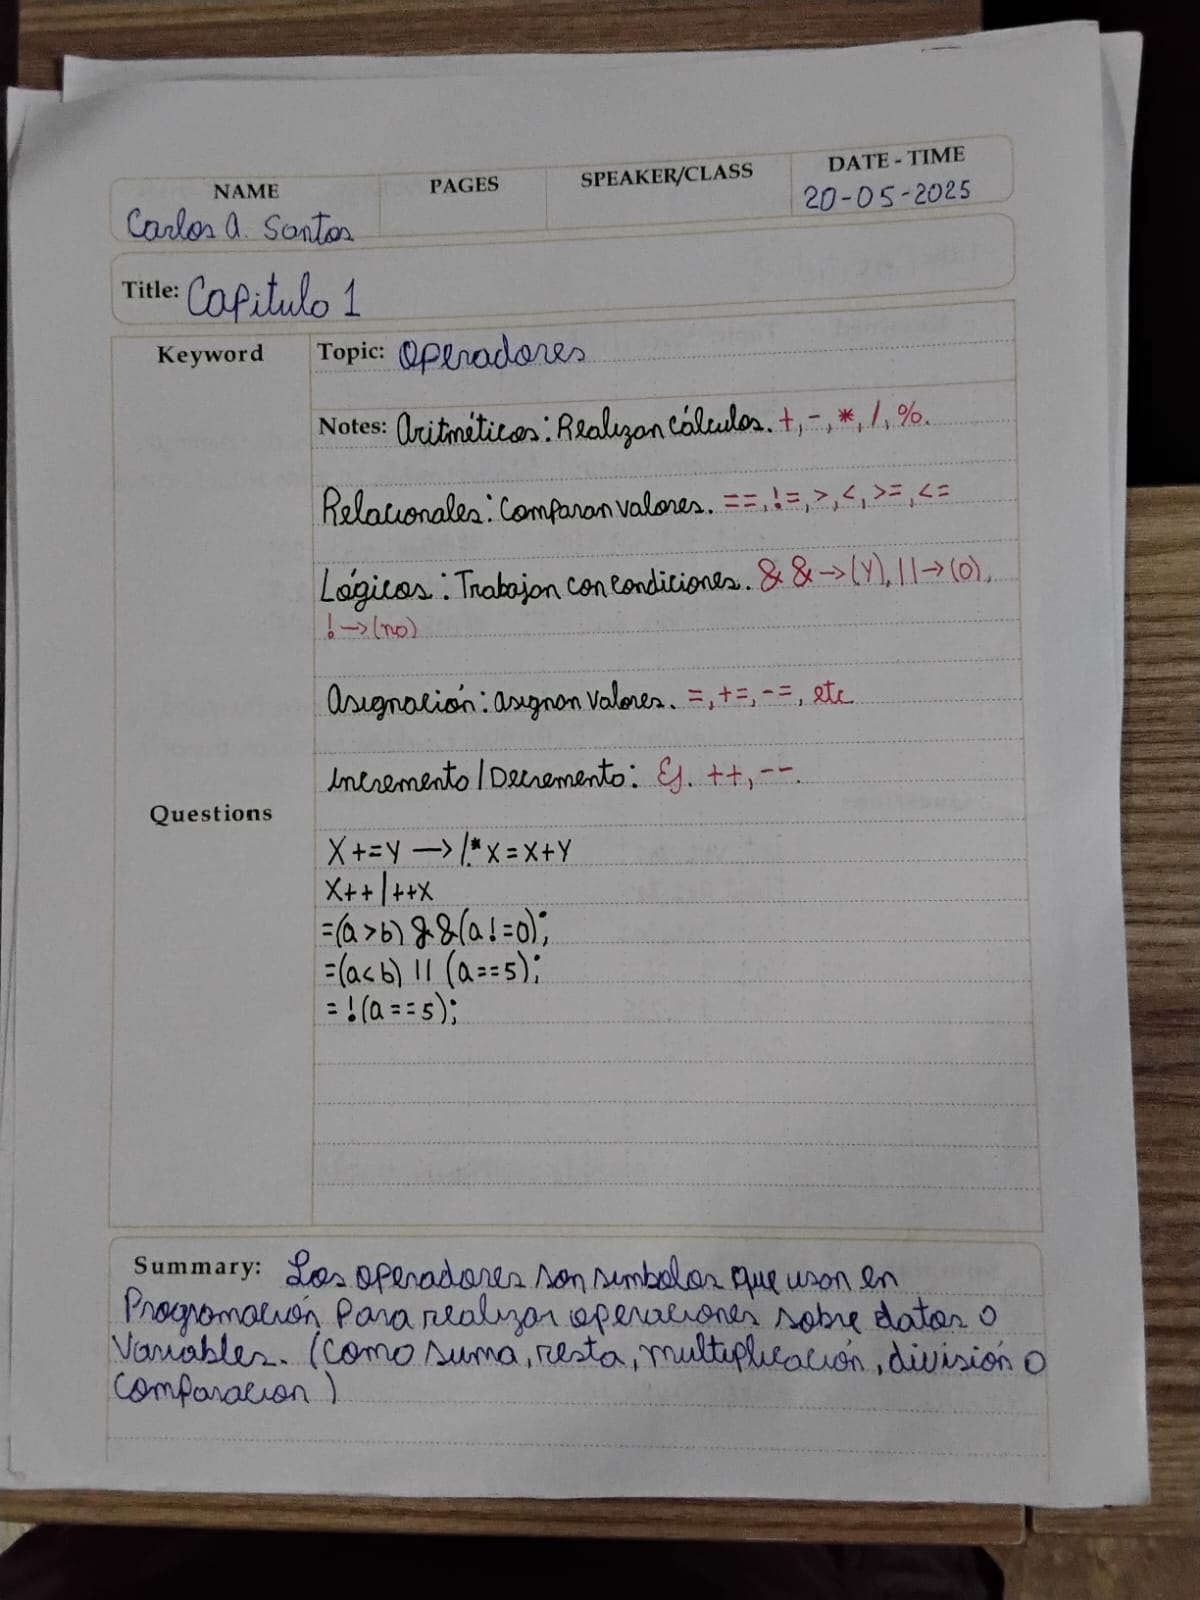 NAME PAGES SPEAKER/CLASS DATE - TIME
Carlos A. Santos 20-05-2025
Title: Capitulo 1
Keyword Topic: Operadores
Notes: Aritméticos: Realizan cálculos. +, -, *, /, %.
Relacionales: Comparan valores. ==, !=, >, <, >=, <=
Lógicos: Trabajan con condiciones. && → (Y), || → (O),
! → (no)
Asignación: asignan valores. =, +=, -=, etc
Incremento/Decremento: Ej. ++, --.
Questions
X+=Y → /* X=X+Y
X++ | ++X
=(a>b) && (a!=0);
=(a<b) || (a==5);
= !(a==5);
Summary: Los operadores son simbolos que usan en
Programación Para realizar operaciones sobre datos o
Variables. (Como suma, resta, multiplicación, división o
Comparacion)